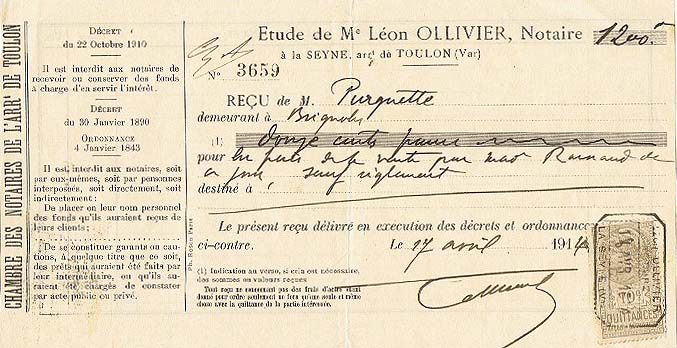 CHAMBRE DES NOTAIRES DE L'ARRt DE TOULON
DÉCRET
du 22 Octobre 1910
Il est interdit aux notaires de
recevoir ou conserver des fonds
à charge d'en servir l'intérêt.
DÉCRET
du 30 Janvier 1890
ORDONNANCE
4 Janvier 1843
Il est interdit aux notaires, soit
par eux-mêmes, soit par personnes
interposées, soit directement, soit
indirectement :
De placer en leur nom personnel
des fonds qu'ils auraient reçus de
leurs clients ;
De se constituer garants ou cau-
tions, à quelque titre que ce soit,
des prêts qui auraient été faits par
leur intermédiaire, ou qu'ils au-
raient été chargés de constater
par acte public ou privé.
Etude de Me Léon OLLIVIER, Notaire
1200f
à la SEYNE, arrt de TOULON (Var)
No 3659
REÇU de M. Purquette
demeurant à Brignoles
(1) douze cents francs
pour le prix de la vente par
ce jour, sauf règlement
destiné à
Le présent reçu délivré en execution des décrets et ordonnance
ci-contre. Le 17 avril 1914
(1) Indication au verso, si cela est nécessaire,
des sommes ou valeurs reçues
Tout reçu ne concernant pas des frais d'actes étant
donné pour ordre seulement ne fera qu'une seule et même
chose avec la quittance de la partie intéressée.
LA SEYNE
QUITTANCES